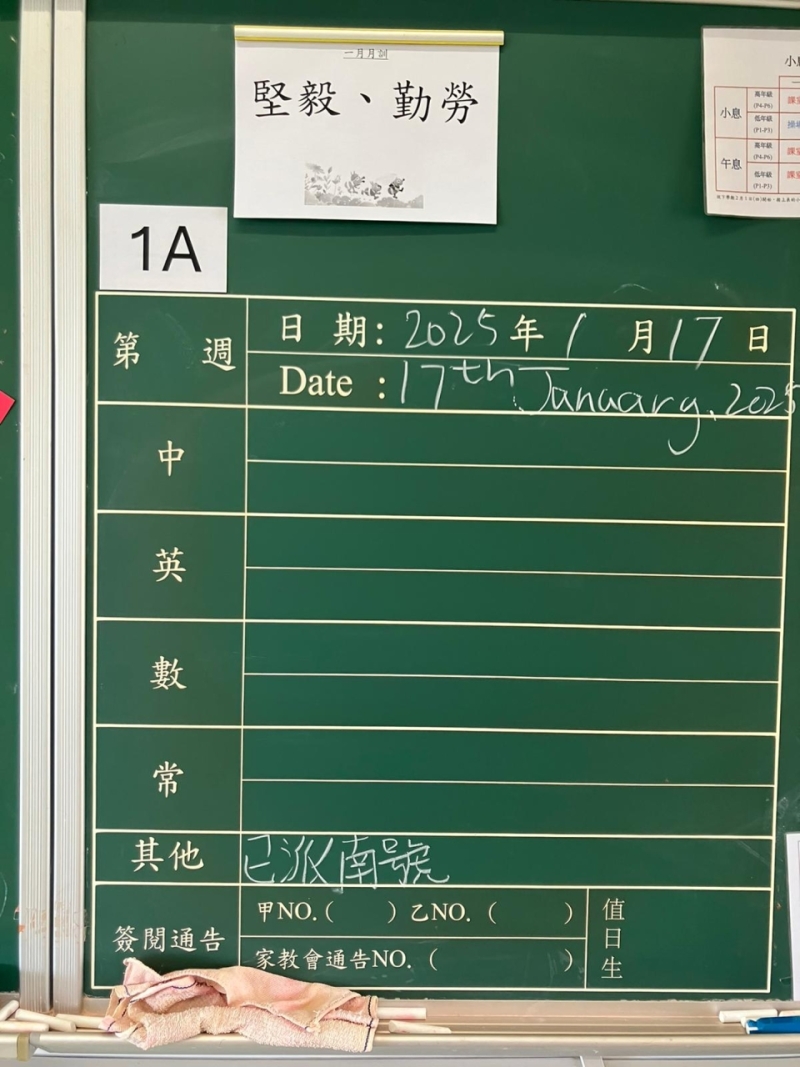 一月月訓
堅毅、勤勞
小息
小息
高年級
(P4-P6)
低年級
(P1-P3)
午息
高年級
(P4-P6)
低年級
(P1-P3)
1A
第 週
日 期: 2025 年 1 月 17 日
Date : 17th January, 2025
中
英
數
常
其他 已派南號
簽閱通告
甲NO.( ) 乙NO. ( )
家教會通告NO. ( )
值日生